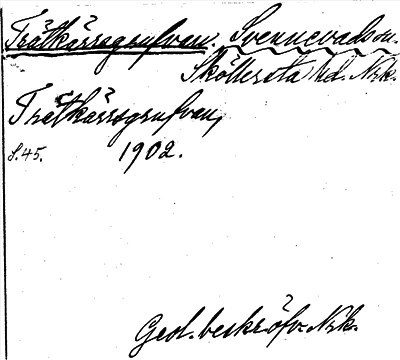 Trätkärrsgrufvan. Svennevads sn.
Sköllersta hd. Nrk.
Trätkärrsgrufvan,
S.45. 1902.
Geol. beskr. öfv. Nrk.